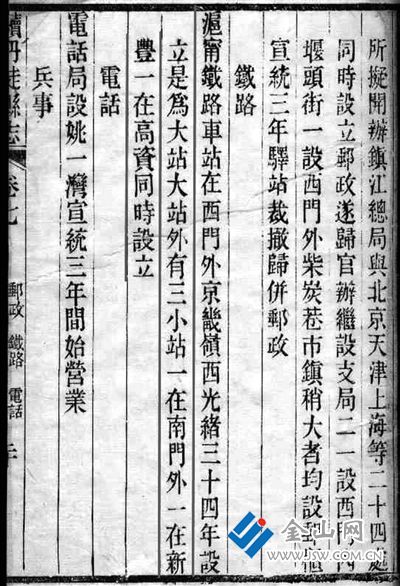 所擬開辦鎮江總局與北京天津上海等二十四處
同時設立郵政遂歸官辦繼設支局二一設西門內
堰頭街一設西門外柴炭巷市鎮稍大者均設郵櫃
宣統三年驛站裁撤歸併郵政
鐵路
滬甯鐵路車站在西門外京畿嶺西光緒三十四年設
立是為大站大站外有三小站一在南門外一在新
豐一在高資同時設立
電話
電話局設姚一灣宣統三年間始營業
兵事
續丹徒縣志 卷七 郵政 鐵路 電話
金山网
WWW.JSW.COM.CN